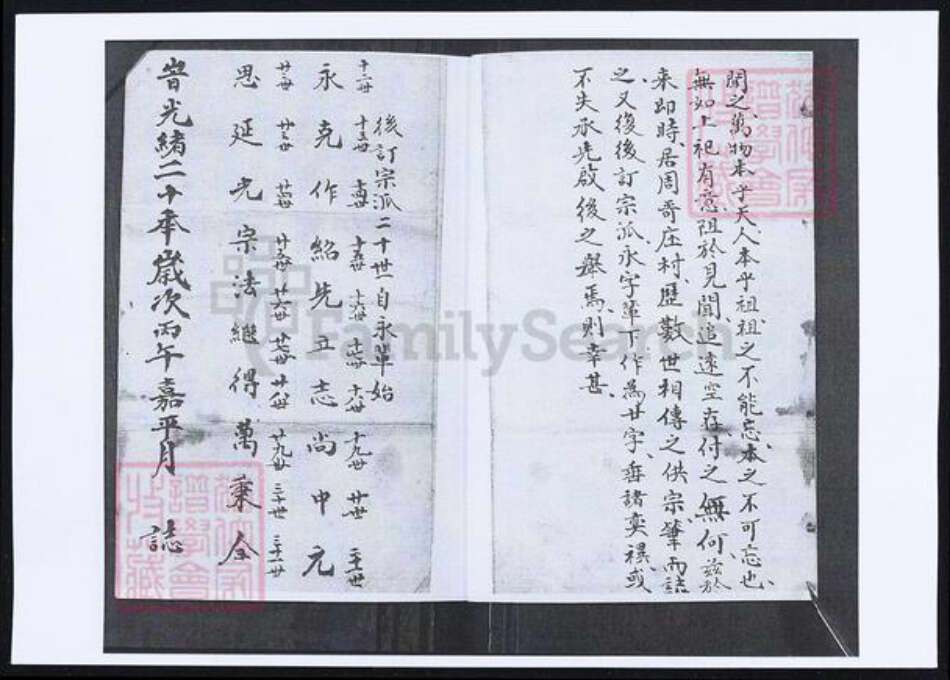 聞之萬物本乎天人本乎祖祖之不能忘本之不可忘也
無如上祀有意阻於見聞追遠空存付之無何茲於
來即時居周哥庄村歷數世相傳之供宗筆而誌
之又復後訂宗派永字輩下作為廿字垂諸奕禩或
不失承先啟後之舉焉則幸甚
後訂宗派二十世自永輩始
十二世 十三世 十四世 十五世 十六世 十七世 十八世 十九世 廿世 二十一世
永克作紹先立志尚中元
廿二世 廿三世 廿四世 廿五世 廿六世 廿七世 廿八世 廿九世 三十世 三十一世
思延光宗法繼得萬秉全
峕光緒二十年歲次丙午嘉平月 誌
FamilySearch